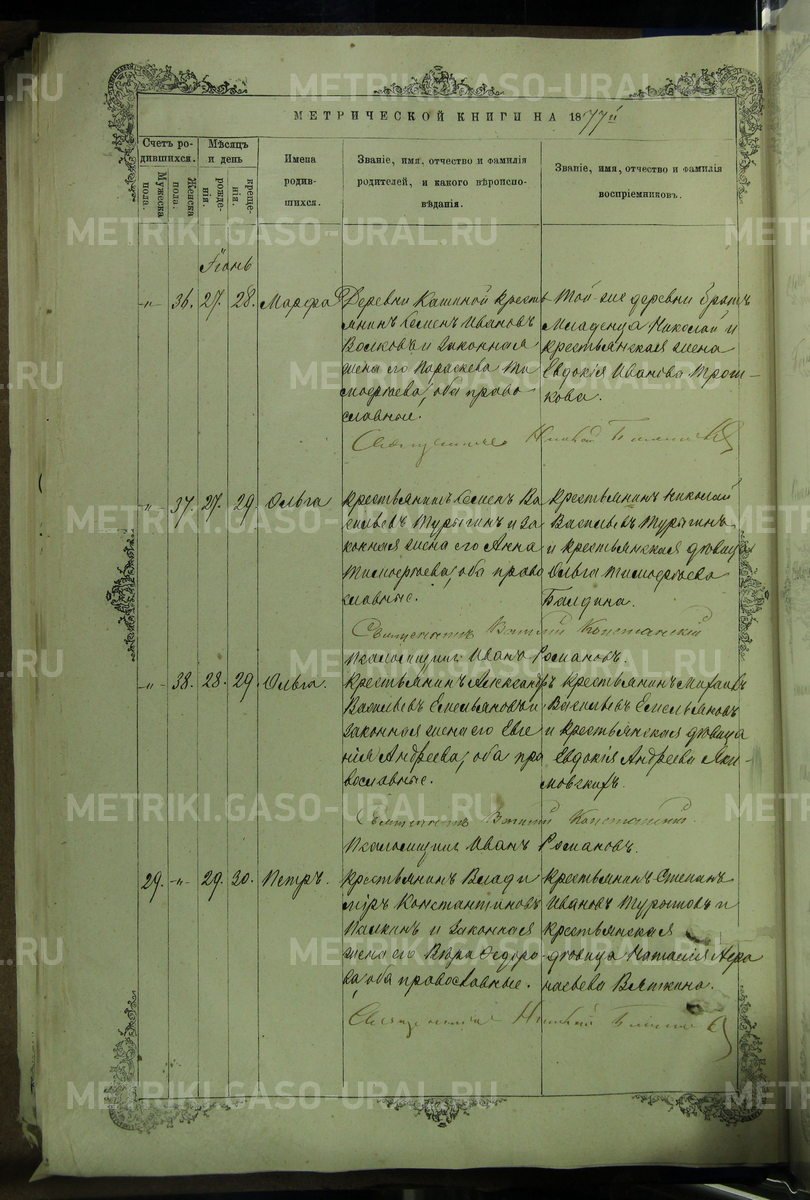 МЕТРИЧЕСКОЙ КНИГИ НА 1877й
Счетъ ро-
дившихся.
Мужеска
пола.
Женска
пола.
Мѣсяцъ
и день
рожде-
нія.
креще-
нія.
Имена
родив-
шихся.
Званіе, имя, отчество и фамилія
родителей, и какого вѣроиспо-
вѣданія.
Званіе, имя, отчество и фамилія
воспріемниковъ.
Іюнь
-„- 36. 27. 28. Марфа
Деревни Кашиной кресть
янинъ Семенъ Ивановъ
Волковъ и законная
жена его Параскева Ти
мофеева; оба право
славные.
Той-же деревни братъ
младенца Николай и
крестьянская жена
Евдокія Иванова Трош-
кова.
Священникъ
-„- 37. 27. 29. Ольга
Крестьянинъ Семенъ Ва
сильевъ Турыгинъ и за
конная жена его Анна
Тимофеева; оба право
славные.
Крестьянинъ Николай
Васильевъ Турыгинъ
и крестьянская дѣвица
Ольга Тимофеева
Балдина.
Священникъ
Псаломщикъ Иванъ Романовъ.
-„- 38. 28. 29. Ольга.
Крестьянинъ Александръ
Васильевъ Емельяновъ и
законная жена его Евге
нія Андреева; оба пра
вославные.
Крестьянинъ Михаилъ
Васильевъ Емельяновъ
и крестьянская дѣвица
Евдокія Андреева Яки-
мовскихъ.
Священникъ
Псаломщикъ Иванъ Романовъ.
29. -„- 29. 30. Петръ.
Крестьянинъ Влади
міръ Константиновъ
Палкинъ и законная
жена его Вѣра Федоро
ва; оба православные.
Крестьянинъ Степанъ
Ивановъ и
крестьянская
дѣвица Наталія Афа
насьева Вяткина.
Священникъ
METRIKI.GASO-URAL.RU